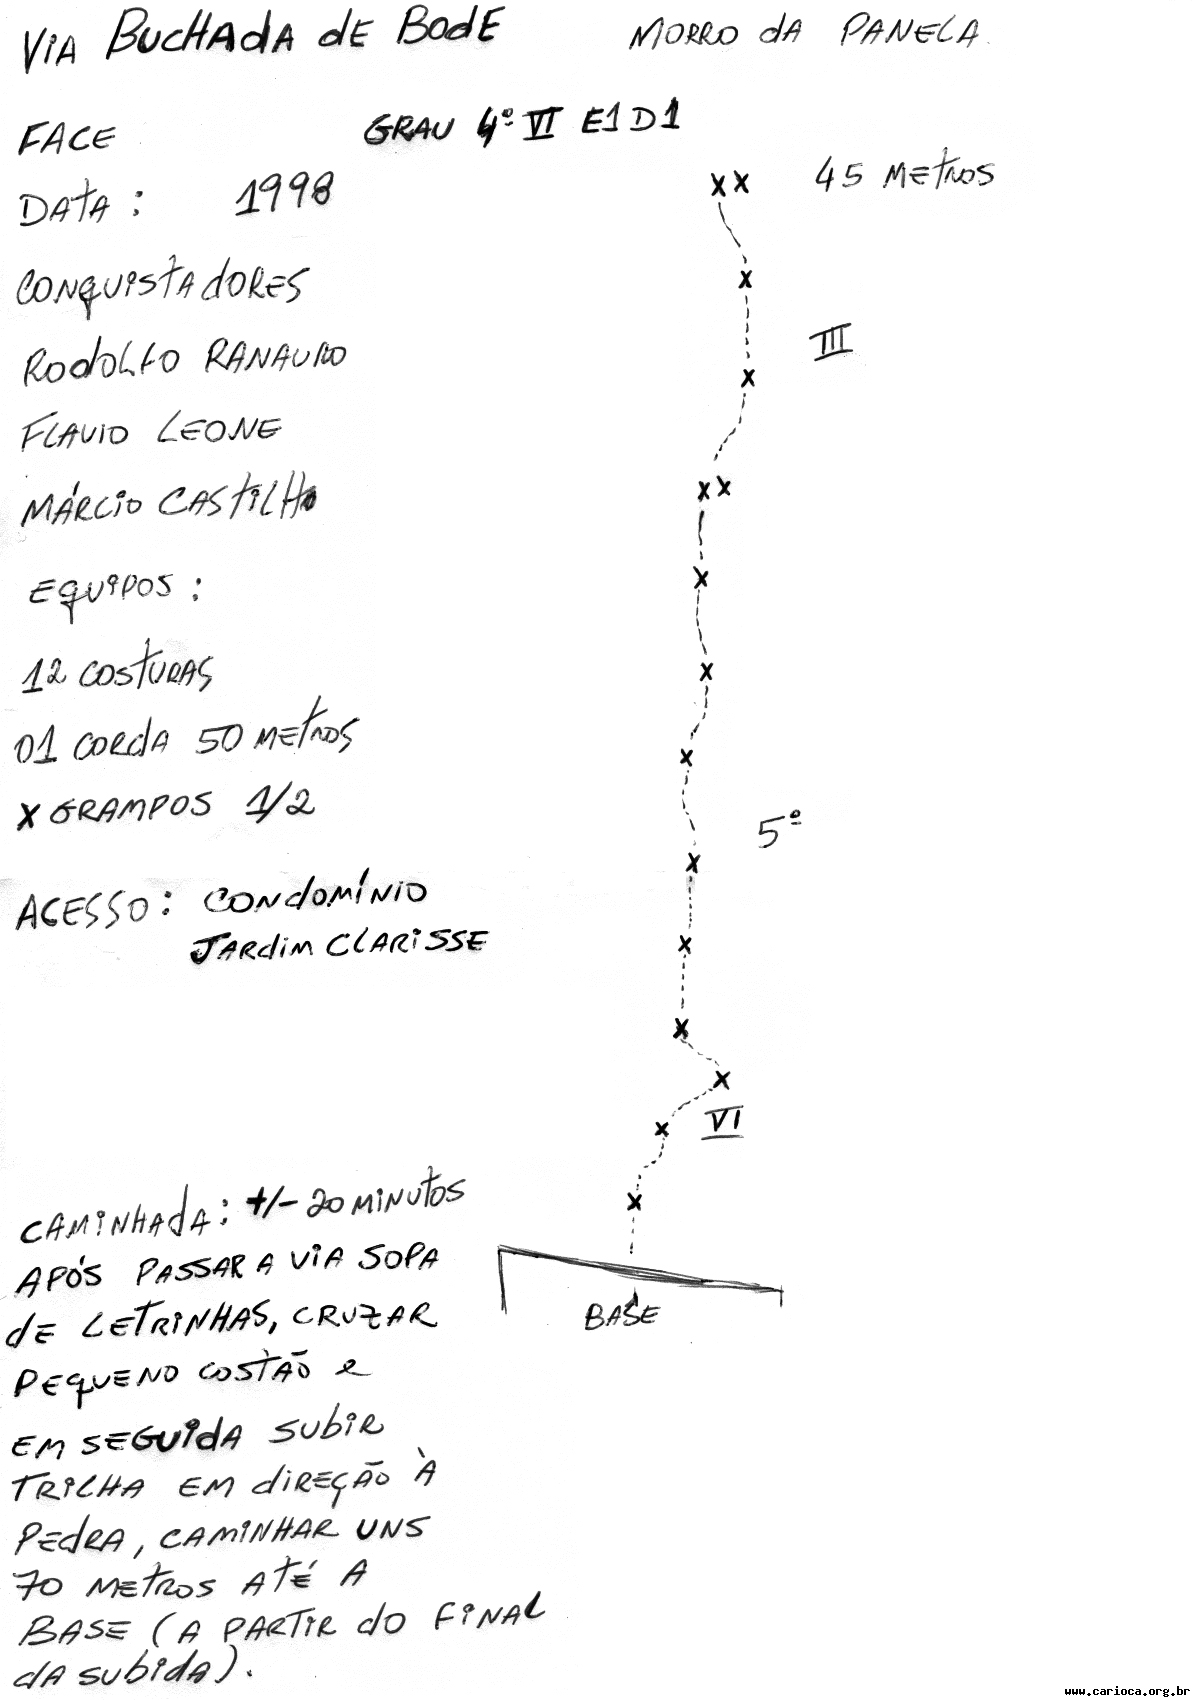 VIA BUCHADA DE BODE MORRO DA PANELA
FACE GRAU 4º VI E1 D1
DATA: 1998 45 METROS
CONQUISTADORES
RODOLFO RANAURO
FLAVIO LEONE
MÁRCIO CASTILHO
EQUIPOS:
12 COSTURAS
01 CORDA 50 METROS
X GRAMPOS 1/2
ACESSO: CONDOMÍNIO
JARDIM CLARISSE
III
5º
VI
BASE
CAMINHADA: +/- 20 MINUTOS
APÓS PASSAR A VIA SOPA
DE LETRINHAS, CRUZAR
PEQUENO COSTÃO E
EM SEGUIDA SUBIR
TRILHA EM DIREÇÃO À
PEDRA, CAMINHAR UNS
70 METROS ATÉ A
BASE (A PARTIR DO FINAL
DA SUBIDA).
www.carioca.org.br